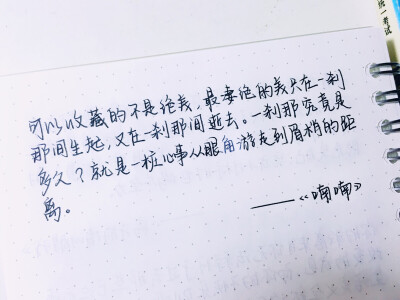 统一考试
可以收藏的不是绝美，最要绝的美只在一刹
那间生起，又在一刹那间逝去。一刹那究竟是
多久？就是一桩心事从眼角游走到眉梢的距
离。
——《喃喃》